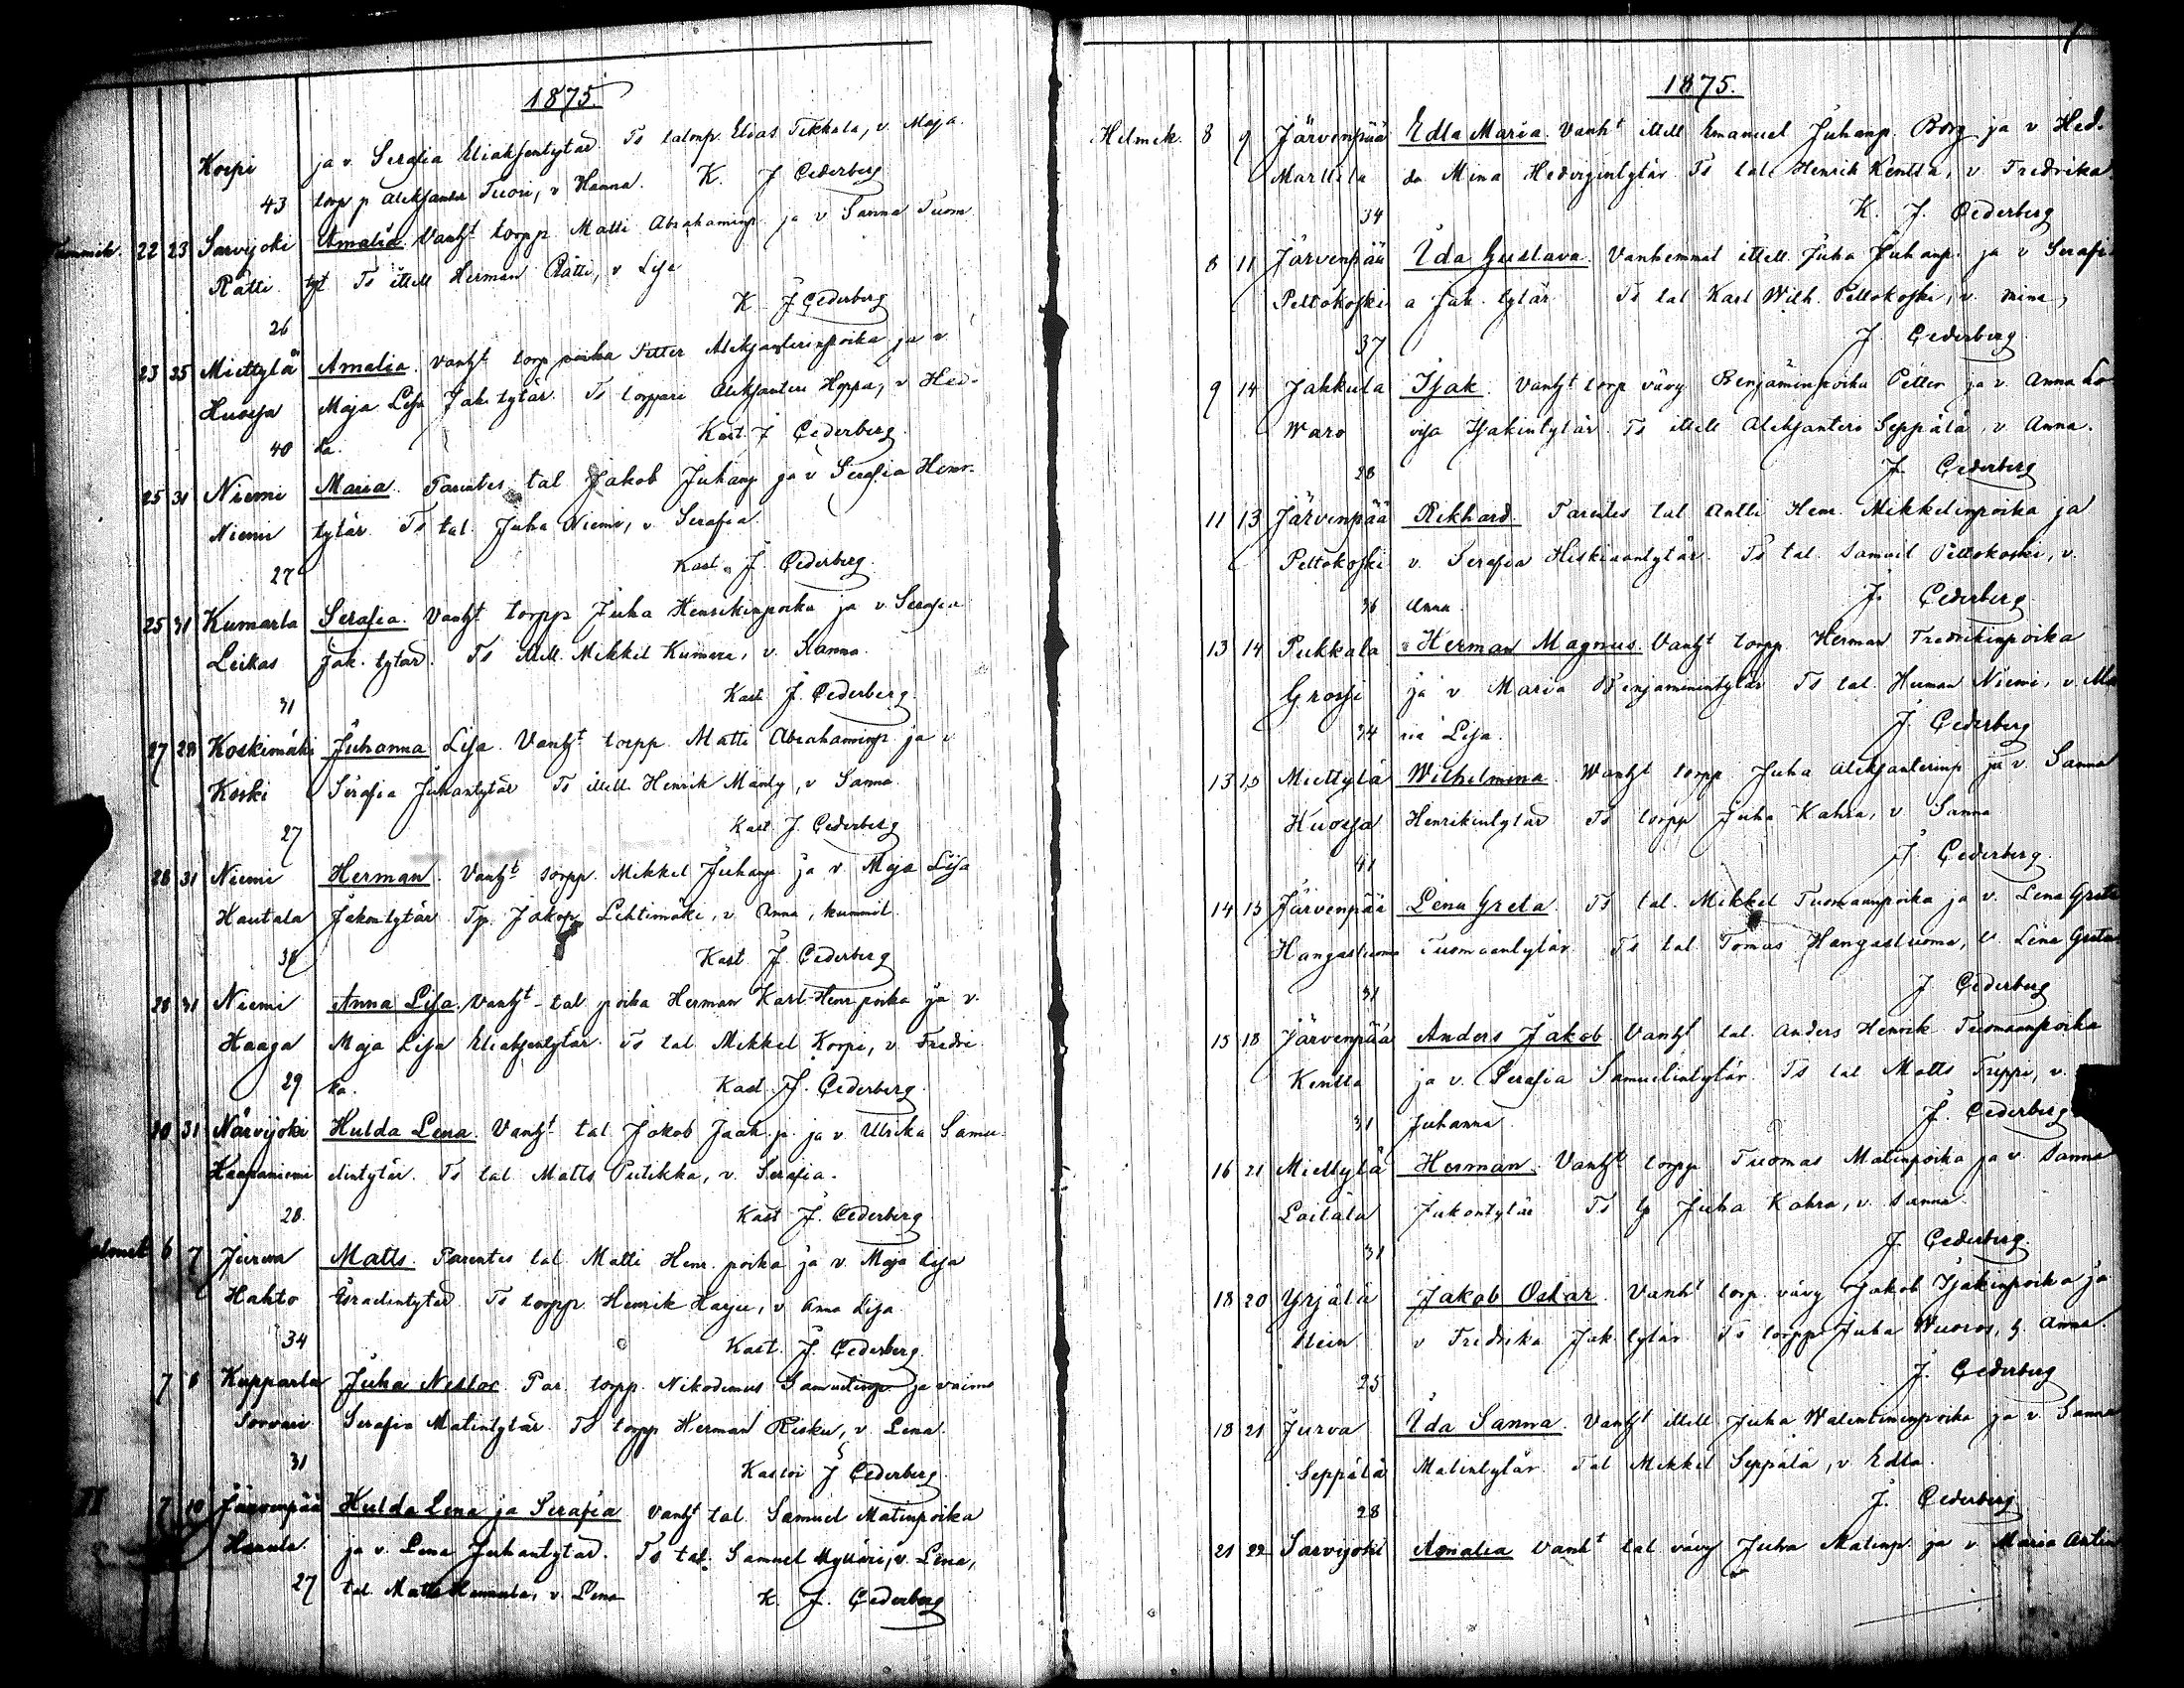 1875.
Korpi ja v. Serafia Eliaksentytär. Ts talonp. Elias Tikkala, v. Maja
43 torp p Aleksander Tuori, v Hanna. K. J Cederberg
Tammik. 22 23 Sarvijoki Amalia. Vanht torpp. Matti Abrahaminp. ja v Sanna Tuom
Rätti tyt Ts itell Herman Rätti, v Lisa
K J Cederberg
26
23 25 Miettylä Amalia. Vanht torp poika Petter Aleksanterinpoika ja v
Huosja Maja Lisa Jak. tytär. Ts torppari Aleksanteri Hoppa, v Hed-
40 da. Kast. J Cederberg
25 31 Niemi Maria. Parentes tal Jakob Juhanp ja v Serafia Henr.
Niemi tytär. Ts tal. Juha Niemi, v Serafia.
27 Kast. J. Cederberg.
25 31 Kumarla Serafia. Vanht torpp Juha Henrikinpoika ja v Serafia
Leikas Jak. tytär. Ts itell. Mikkel Kumara, v. Sanna.
31 Kast. J. Cederberg.
27 28 Koskimäki Juhanna Lisa. Vanht torpp. Matti Abrahaminp ja v
Koski Serafia Juhantytär Ts itell. Henrik Mänty, v Sanna
27 Kast. J. Cederberg
28 31 Niemi Herman. Vanht torpp. Mikkel Juhanp ja v. Maja Lisa
Hautala Jakontytär. Tp. Jakop Lehtimäki, v Anna, kummit.
38 Kast J. Cederberg
28 31 Niemi Anna Lisa. Vanht tal poika Herman Karl-Henr poika ja v.
Haaga Maja Lisa Eliaksentytär. Ts tal Mikkel Korpi, v. Fredri
29 ka. Kast. J. Cederberg.
30 31 Närvijoki Hulda Lena. Vanht tal Jakob Jaak. p. ja v. Ulrika Samu-
Haapaniemi elintytär. Ts tal. Matts Putikka, v. Serafia.
28. Kast J. Cederberg
Helmek 6 7 Jurva Matts. Parentes tal. Matti Henr. poika ja v. Maja Lisa
Hahto Esraelintytär Ts torpp. Henrik Harju, v Anna Lisa
34 Kast. J. Cederberg.
7 8 Kupparla Juha Nestor. Par. torpp. Nikodemus Samuelinp ja vaimo
Sorvari Serafia Matintytär. Ts torpp Herman Risku, v. Lena.
31 Kastoi J Cederberg.
II 7 10 Järvenpää Hulda Lena ja Serafia Vanht tal. Samuel Matinpoika
Hannula ja v. Lena Juhantytär. Ts tal. Samuel Mylläri, v. Lena,
27 tal. Matts Hannula, v. Lena K. J. Cederberg
1875.
Helmek. 8 9 Järvenpää Edla Maria. Vanht itell Emanuel Juhanp. Borg ja v Hed-
Marttila da Mina Hedvigintytär Ts tal. Henrik Kentta, v Fredrika
34 K. J. Cederberg
8 11 Järvenpää Ida Gustava. Vanhemmat itell. Juha Juhanp. ja v Serafi-
Peltokoski a Jak. tytär Ts tal Karl Wilh. Peltokoski, v. Mina,
37 J Cederberg
9 14 Jakkula Isak. Vanht torp vävy Benjaminpoika Petter ja v. Anna Lo-
Waro visa Isakintytär. Ts itell Aleksanteri Seppälä, v Anna.
28 J. Cederberg
11 13 Järvenpää Rikhard. Parentes tal Antti Henr. Mikkelinpoika ja
Peltokoski v. Serafia Hiskiaantytär. Ts tal. Samuel Peltokoski, v.
36 Anna. J. Cederberg
13 14 Pukkala Herman Magnus. Vanht torpp. Herman Fredrikinpoika
Grossi ja v Maria Benjaminintytär Ts tal. Herman Niemi, v. Ma
34 ria Lisa. J. Cederberg
13 15 Miettylä Wilhelmina. Wanht torpp Juha Aleksanterinp ja v. Sanna
Huosja Henrikintytär Ts torpp Juha Kahra, v Sanna
41 J. Cederberg.
14 15 Järvenpää Lena Greta. Ts tal. Mikkel Tuomaanpoika ja v. Lena Greta
Hangastuoma Tuomaantytär Ts tal. Tomas Hangastuoma, v Lena Greta
31 J Cederberg
15 18 Järvenpää Anders Jakob Vanht tal. Anders Henrik Tuomaanpoika
Kentta ja v. Serafia Samuelintytär. Ts tal Matts Treppi, v.
31 Juhanna. J. Cederberg
16 21 Miettylä Herman. Vanht torpp Tuomas Matinpoika ja v. Sanna
Laitala Jakontytär Ts tp Juha Kahra, v. Sanna
31 J. Cederberg.
18 20 Yrjälä Jakob Oskar. Vanht torp. vävy Jakob Isakinpoika ja
v Fredrika Jak. tytär Ts torpp Juha Wuoros, h. Anna.
25 J. Cederberg
18 21 Jurva Ida Sanna. Vanht itell Juha Walentininpoika ja v. Sanna
Seppälä Matintytär. Tal Mikkel Seppälä, v Edla.
28 J. Cederberg
21 22 Sarvijoki Amalia Vanht tal vävy Juha Matinp. ja v Maria Antin